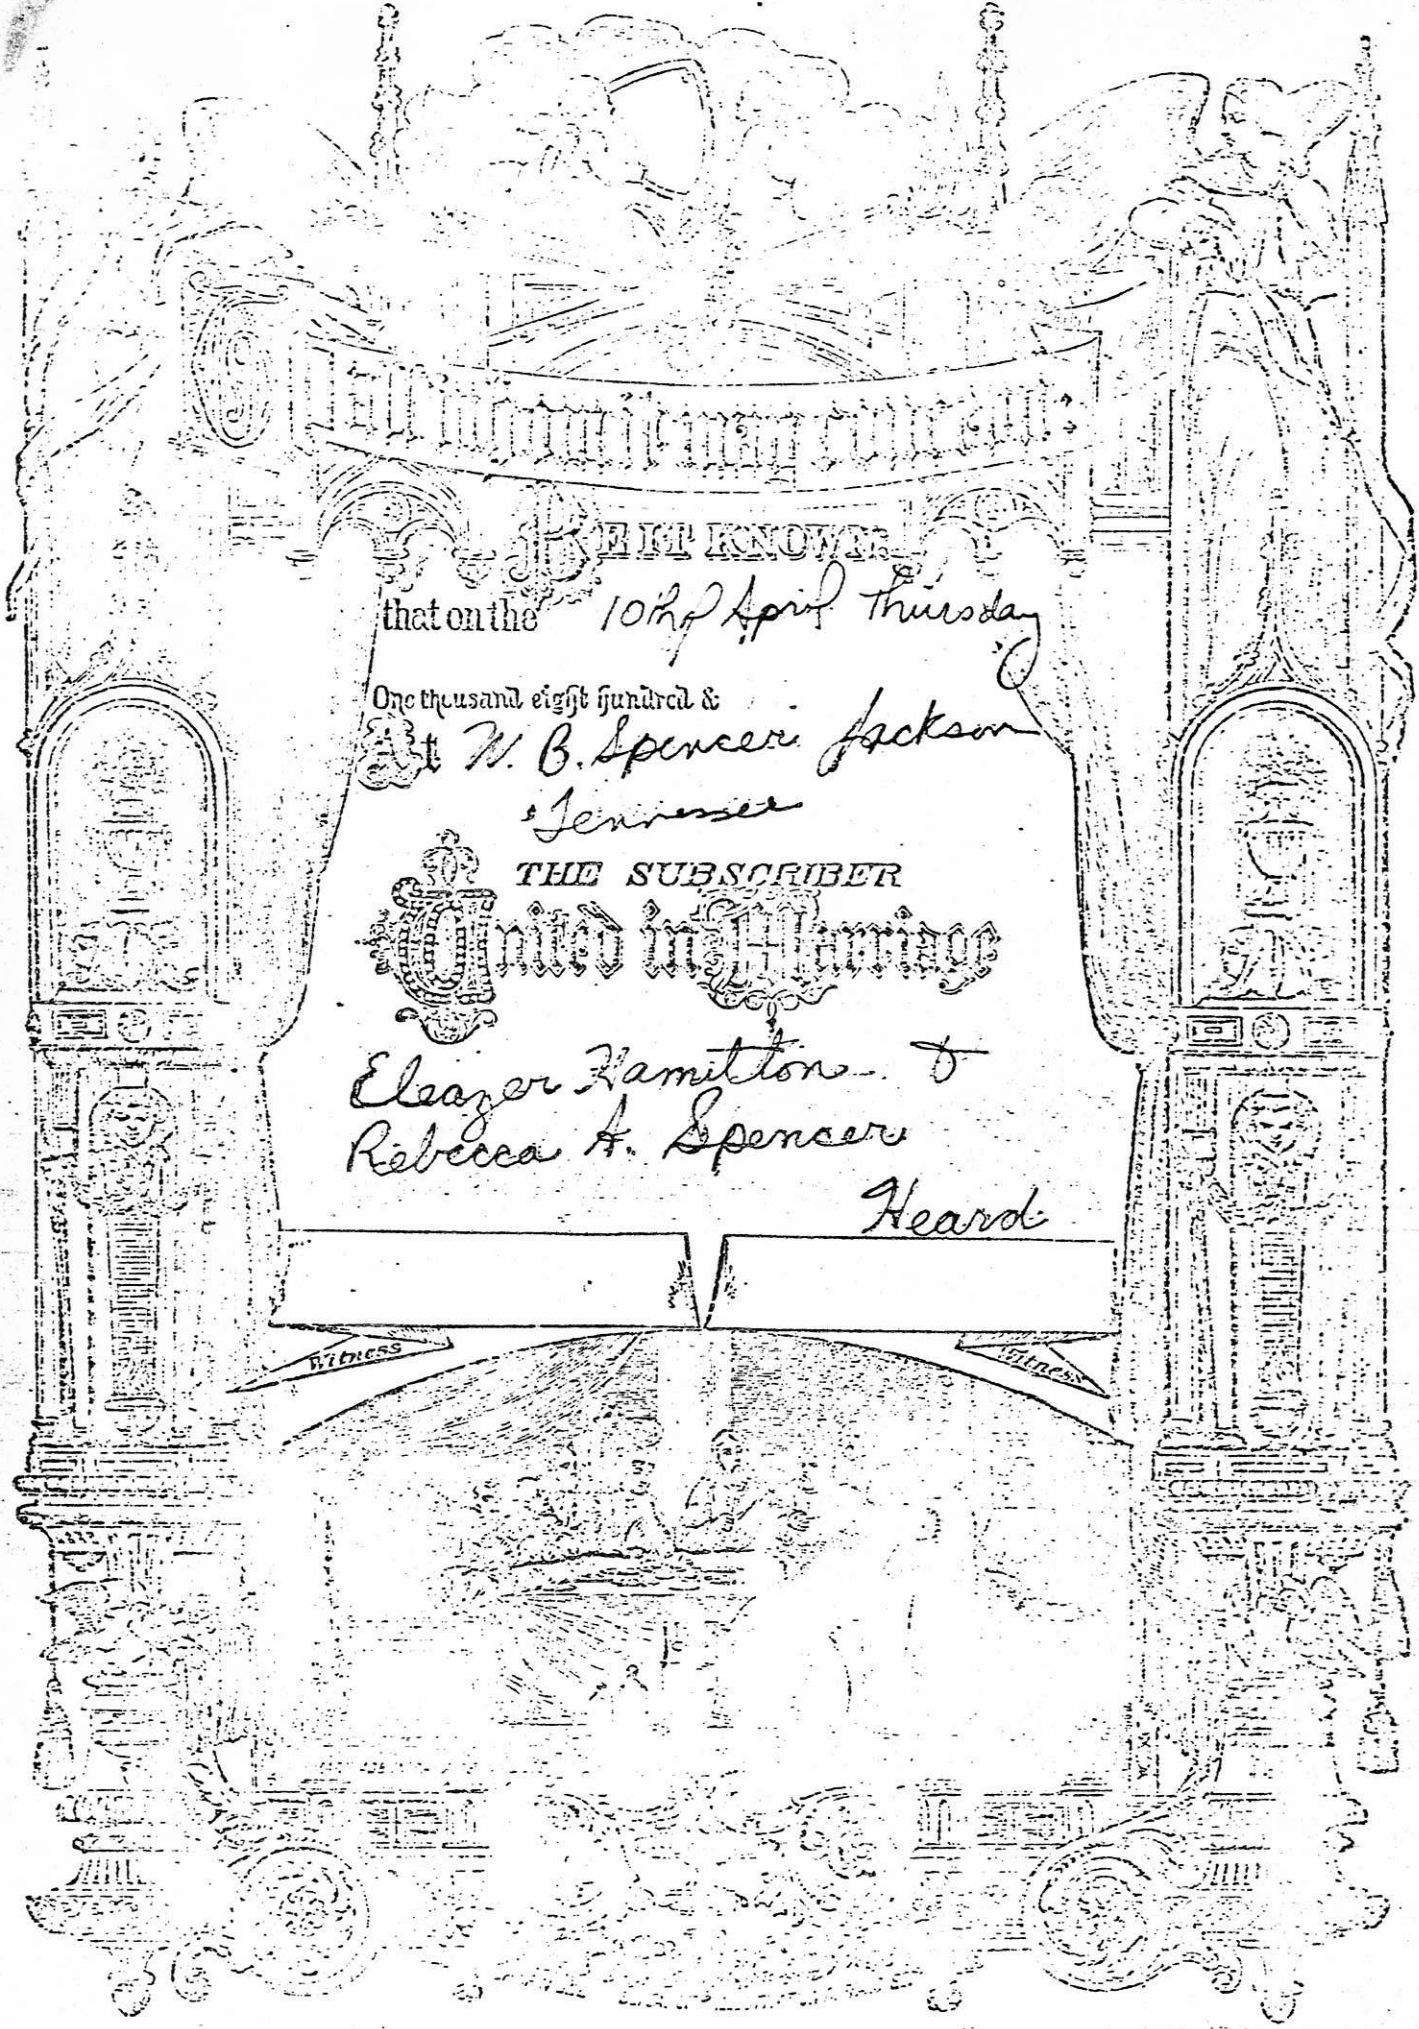 To all whom it may concern:
BE IT KNOWN:
that on the 10th of April Thursday
One thousand eight hundred &
At W. B. Spencer Jackson
Tennessee
THE SUBSCRIBER
United in Marriage
Eleazer Hamilton &
Rebecca A. Spencer
Heard
Witness Witness